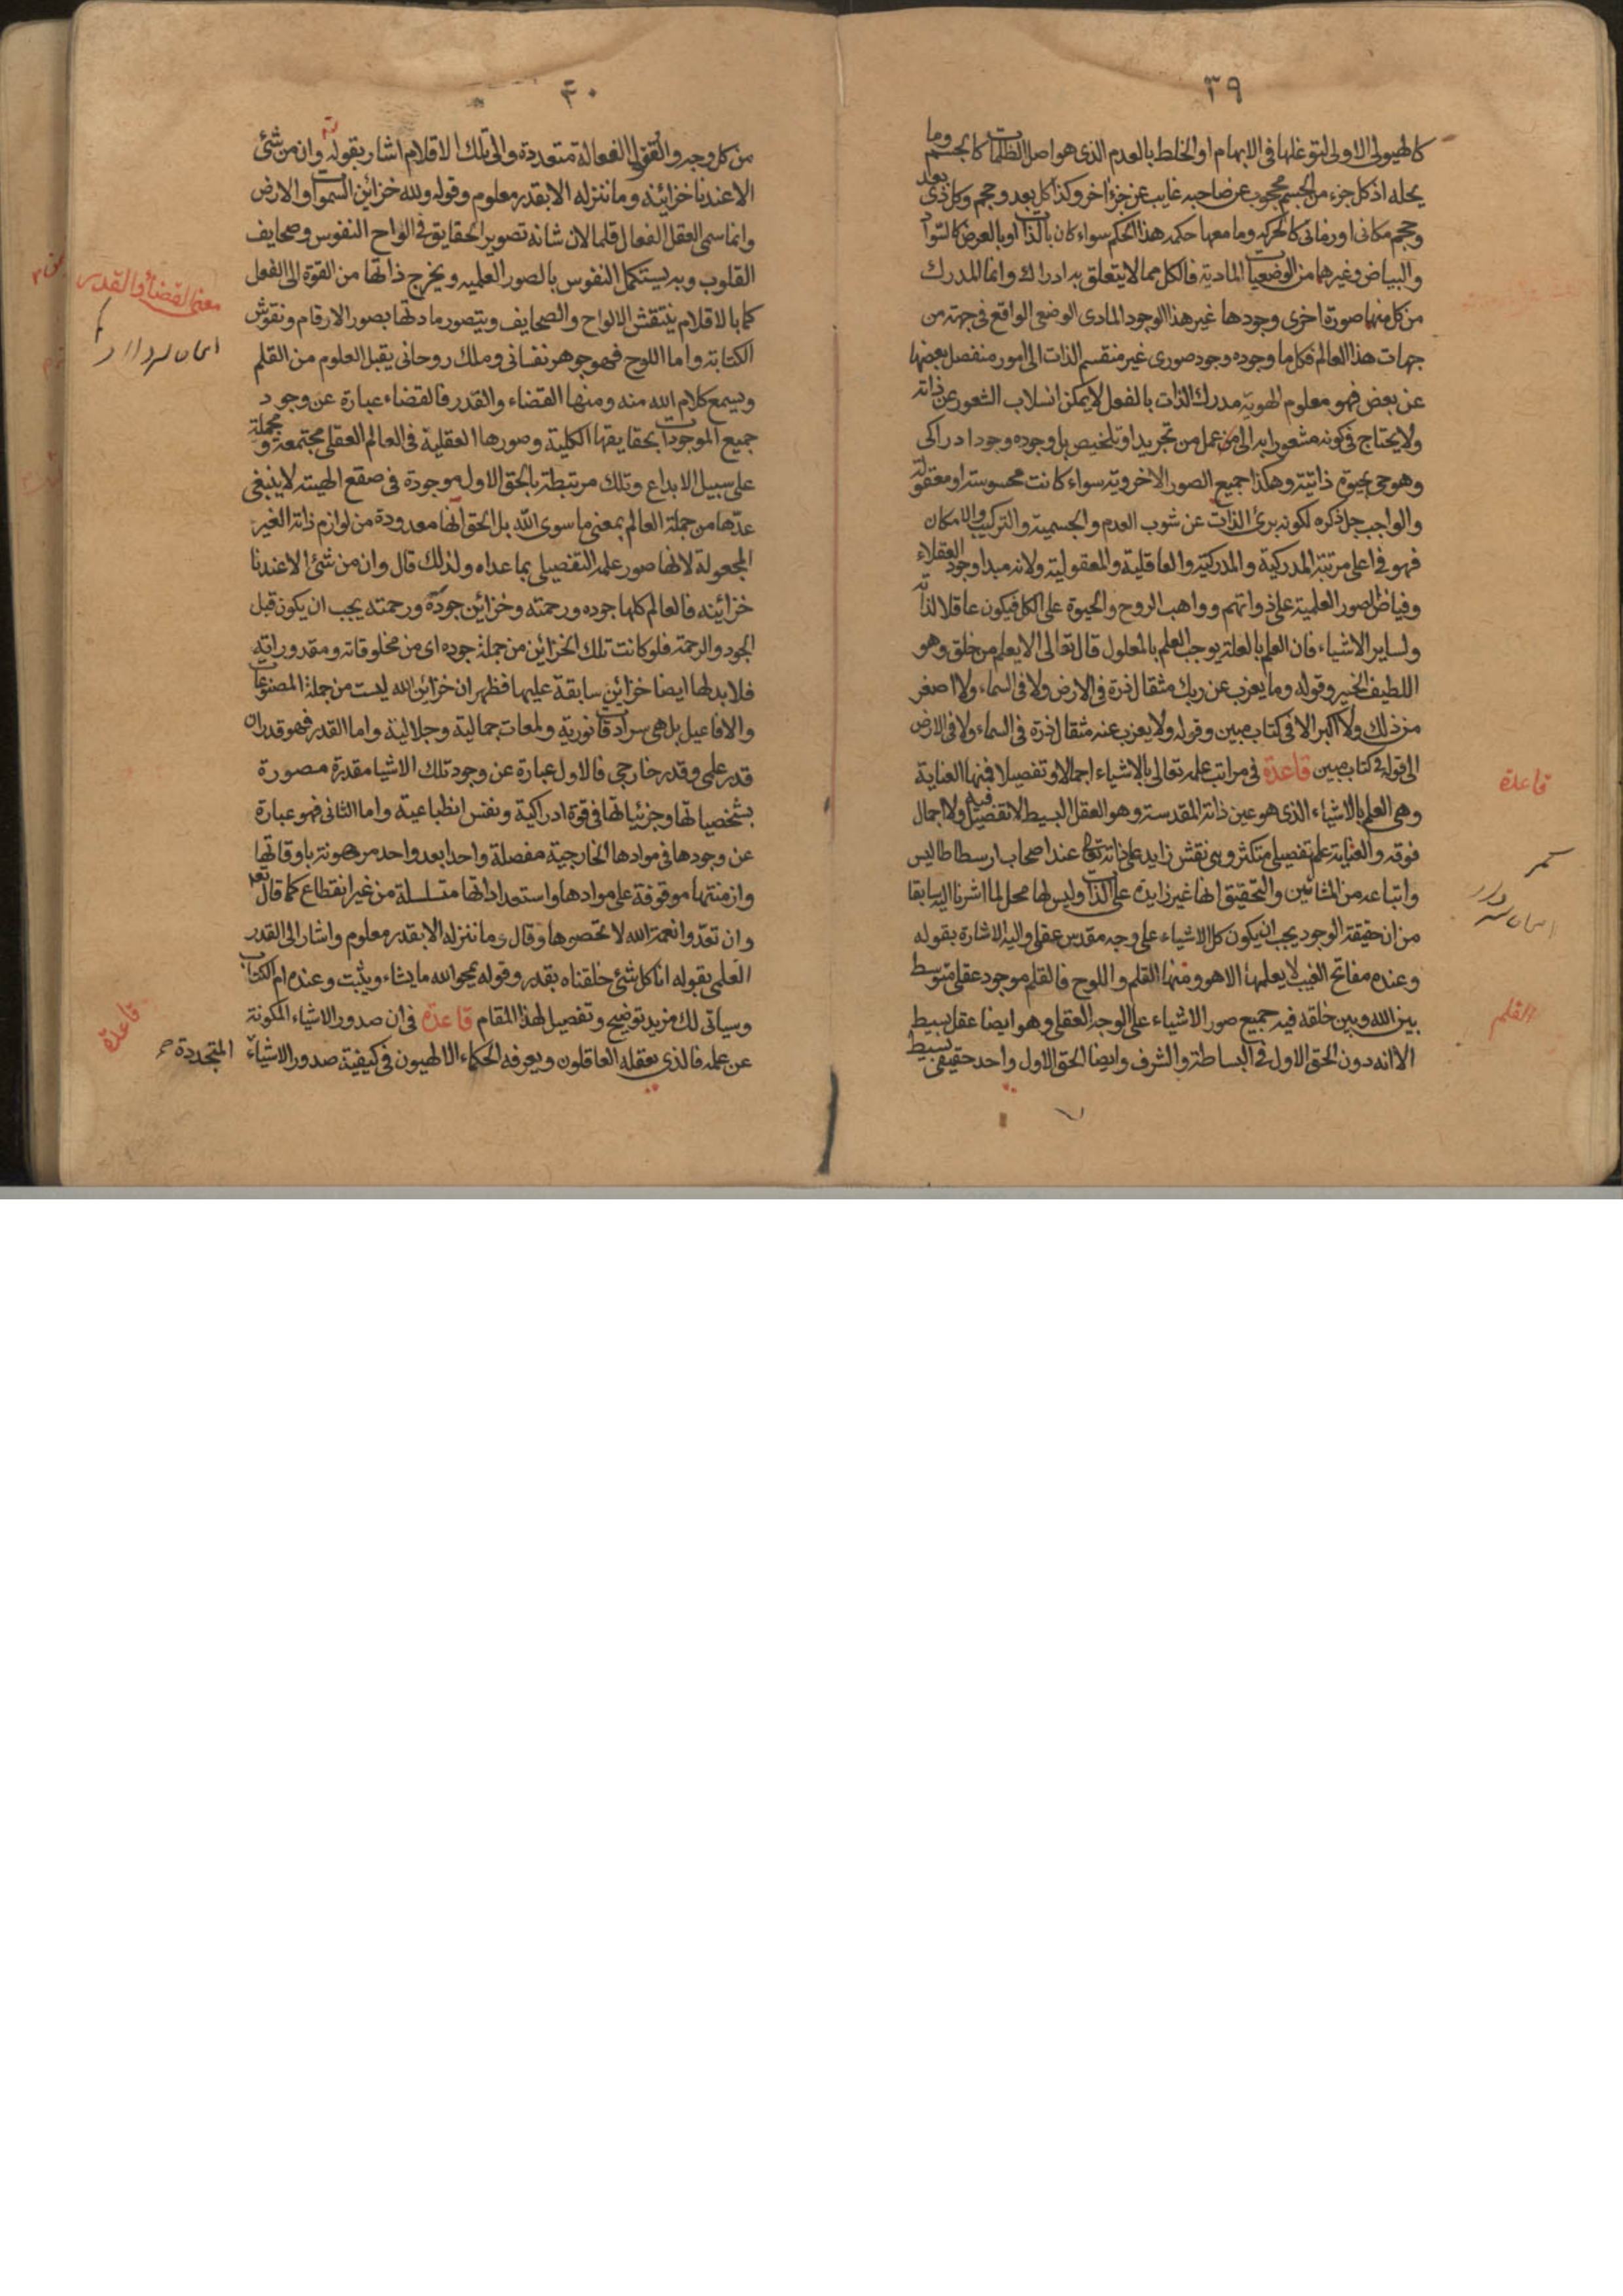 ٣٩
كالهيولى الاولى لتوغلها فى الابهام او الخلط بالعدم الذى هو اصل الظلمات كالجسم وما
يحله اذ كل جزء من الجسم محجوب عن صاحبه غايب عن جزء اخر وكذا كل بعد وحجم وكل ذى بعد
وحجم مكانى او زمانى كالحركه وما معها حكمه هذا الحكم سواء كان بالذات او بالعرض كالسواد
والبياض وغيرهما من الوضعيات الماديه فالكل مما لا يتعلق به ادراك وانما المدرك
من كل منها صورة اخرى وجودها غير هذا الوجود المادى الوضعى الواقع فى جهته من
جهات هذا العالم فكل ما وجوده وجود صورى غير منقسم الذات الى امور منفصل بعضها
عن بعض فهو معلوم الهويه مدرك الذات بالفعل لا يمكن انسلاب الشعور عن ذاته
ولا يحتاج فى كونه مشعورا به الى من عمل من تجريد او تلخيص بل وجوده وجود ادراكى
وهو حى بحيوة ذاتيته وهكذا جميع الصور الاخرويه سواء كانت محسوسته او معقوله
والواجب جل ذكره لكونه برئ الذات عن شوب العدم والجسميه والتركيب والامكان
فهو فى اعلى مرتبة المدركية والمدركيه والعاقلية والمعقوليه ولانه مبدا وجود العقلاء
وفياض الصور العلميه على ذواتهم وواهب الروح والحيوة على الكل فيكون عاقلا لذاته
ولساير الاشياء فان العلم بالعلة يوجب العلم بالمعلول قال تعالى الا يعلم من خلق وهو
اللطيف الخبير وقوله وما يعزب عن ربك مثقال ذرة فى الارض ولا فى السماء ولا اصغر
من ذلك ولا اكبر الا فى كتاب مبين وقوله ولا يعزب عنه مثقال ذرة فى السماء ولا فى الارض
الى قوله فى كتاب مبين قاعدة فى مراتب علمه تعالى بالاشياء اجمالا وتفصيلا فمنها العناية
وهى العلم بالاشياء الذى هو عين ذاته المقدسة وهو العقل البسيط لا تفصيل فيه ولا اجمال
فوقه والعنايه علم تفصيلى متكثر وهى نقش زايد على ذاته تعالى عند اصحاب ارسطاطاليس
واتباعه من المشائين والتحقيق انها غير زايده على الذات وليس لها محل لما اشرنا اليه سابقا
من ان حقيقة الوجود يجب ان يكون كل الاشياء على وجه مقدس عقلى واليه الاشارة بقوله
وعنده مفاتح الغيب لا يعلمها الا هو ومنها القلم واللوح فالقلم موجود عقلى متوسط
بين الله وبين خلقه فيه جميع صور الاشياء على الوجه العقلى وهو ايضا عقل بسيط
الا انه دون الحق الاول فى البساطة والشرف وايضا الحق الاول واحد حقيقى بسيط
قاعدة
القلم
٤٠
من كل وجه والعقول الفعالة متعددة والى تلك الاقلام اشار بقوله وان من شئ
الا عندنا خزائنه وما ننزله الا بقدر معلوم وقوله ولله خزائن السموات والارض
وانما سمى العقل الفعال قلما لان شانه تصوير الحقايق فى الواح النفوس وصحايف
القلوب وبه يستكمل النفوس بالصور العلميه ويخرج ذاتها من القوة الى الفعل
كما بالاقلام ينتقش الالواح والصحايف ويتصور مادتها بصور الارقام ونقوش
الكتابة واما اللوح فهو جوهر نفسانى وملك روحانى يقبل العلوم من القلم
ويسمع كلام الله منه ومنها القضاء والقدر فالقضاء عبارة عن وجود
جميع الموجودات بحقايقها الكلية وصورها العقلية فى العالم العقلى مجتمعة ومجملة
على سبيل الابداع وتلك مرتبطة بالحق الاول موجودة فى صقع الهيته لا ينبغى
عدّها من جملة العالم بمعنى ما سوى الله بل الحق انها معدودة من لوازم ذاته الغير
المجعولة لانها صور علمه التفصيلى بما عداه ولذلك قال وان من شئ الا عندنا
خزائنه فالعالم كلها جوده ورحمته وخزائن جوده ورحمته يجب ان يكون قبل
الجود والرحمة فلو كانت تلك الخزائن من جملة جوده اى من مخلوقاته ومقدوراته
فلا بد لها ايضا خزائن سابقة عليها فظهر ان خزائن الله ليست من جملة المصنوعات
والافاعيل بل هى سرادقات نورية ولمعات جمالية وجلالية واما القدر فهو قدران
قدر علمى وقدر خارجى فالاول عبارة عن وجود تلك الاشيا مقدرة مصورة
بشخصياتها وجزئياتها فى قوة ادراكية ونفس انطباعية واما الثانى فهو عبارة
عن وجودها فى موادها الخارجية مفصلة واحدا بعد واحد مرهونة باوقاتها
وازمنتها موقوفة على موادها واستعداداتها متسلسلة من غير انقطاع كما قال تعا
وان تعدّوا نعمة الله لا تحصوها وقال وما ننزله الا بقدر معلوم واشار الى القدر
العلمى بقوله انا كل شئ خلقناه بقدر وقوله يمحو الله ما يشاء ويثبت وعنده ام الكتاب
وسياتى لك مزيد توضيح وتفصيل لهذا المقام قاعدة فى ان صدور الاشياء المكونة
عن علمه فالذى يعقله العاقلون ويعرفه الحكماء الالهيون فى كيفية صدور الاشياء
المتجددة
معنى القضاء والقدر
قاعدة